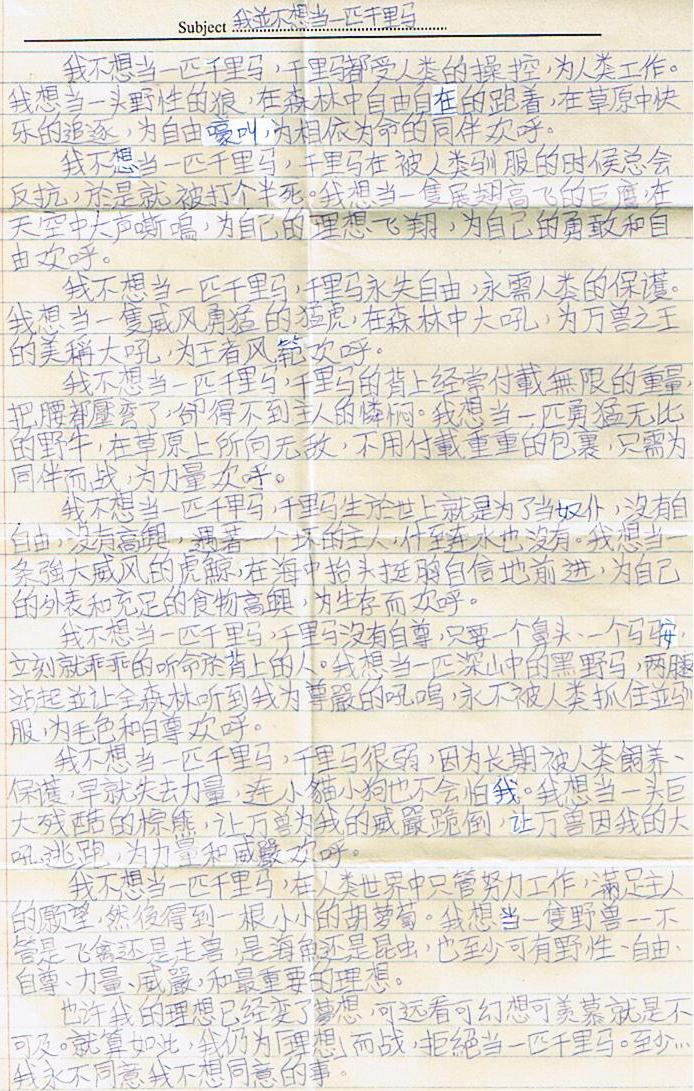 Subject 我並不想当一匹千里马
我不想当一匹千里马，千里马都受人类的操控，为人类工作。
我想当一头野性的狼，在森林中自由自在的跑着，在草原中快
乐的追逐，为自由嚎叫，为相依为命的同伴欢呼。
我不想当一匹千里马，千里马在被人类驯服的时候总会
反抗，於是就被打个半死。我想当一隻展翅高飞的巨鹰，在
天空中大声嘶鳴，为自己的理想飞翔，为自己的勇敢和自
由欢呼。
我不想当一匹千里马，千里马永失自由，永需人类的保護。
我想当一隻威风勇猛的猛虎，在森林中大吼，为万兽之王
的美稱大吼，为王者风範欢呼。
我不想当一匹千里马，千里马的背上经常付載無限的重量，
把腰都壓弯了，卻得不到主人的憐悯。我想当一匹勇猛无比
的野牛，在草原上所向无敌，不用付載重重的包裹，只需为
同伴而战，为力量欢呼。
我不想当一匹千里马，千里马生於世上就是为了当奴仆，没有自
自由，没有高興，遇著一个坏的主人，什至连水也没有。我想当一
条強大威风的虎鲸，在海中抬头挺胸自信地前进，为自己
的外表和充足的食物高興，为生存而欢呼。
我不想当一匹千里马，千里马没有自尊，只要一个鼻头、一个马马安，
立刻就乖乖的听命於背上的人。我想当一匹深山中的黑野马，两腿
站起並让全森林听到我为尊嚴的吼鳴，永不被人类抓住並驯
服，为毛色和自尊欢呼。
我不想当一匹千里马，千里马很弱，因为长期被人类飼养、
保護，早就失去力量，连小貓小狗也不会怕我。我想当一头巨
大残酷的棕熊，让万兽为我的威嚴跪倒，让万兽因我的大
吼逃跑，为力量和威嚴欢呼。
我不想当一匹千里马，在人类世界中只管努力工作，滿足主人
的願望，然後得到一根小小的胡萝蔔。我想当一隻野兽——不
管是飞禽还是走兽，是海魚还是昆虫，也至少可有野性、自由、
自尊、力量、威嚴，和最重要的理想。
也许我的理想已经变了夢想，可远看可幻想可羡慕就是不
可及。就算如此，我仍为「理想」而战，拒絕当一匹千里马。至少…
我永不同意我不想同意的事。